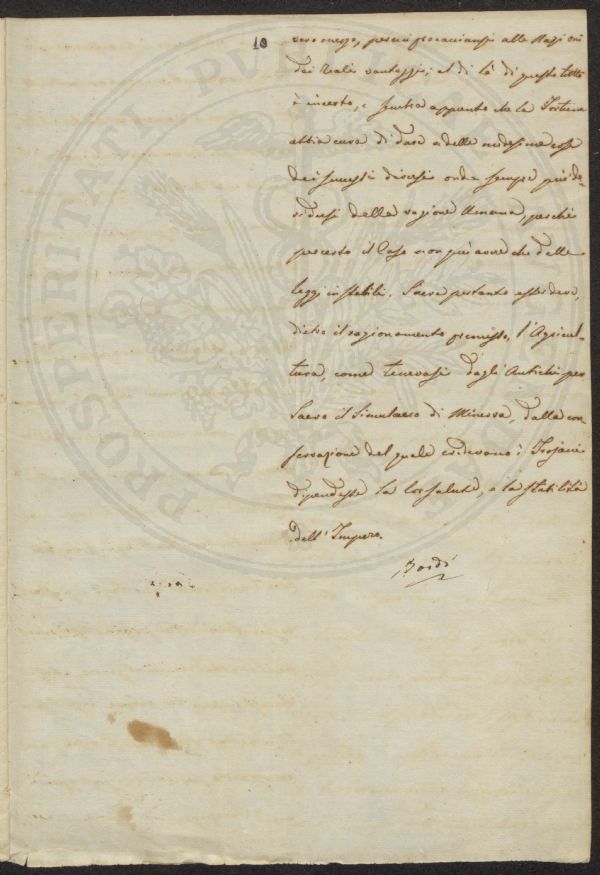 10
vero mezzo, per cui procacciansi alle Nazioni
dei reali vantaggj; al di là di questo tutto
è incerto, e sembra appunto che la Fortuna
abbia cura di dare a delle medesime cose
dei successi diversi onde sempre più de-
ridersi della ragione Umana, perchè
per certo il Caso non può avere che delle
leggi instabili. Sacra pertanto esser deve,
dietro il ragionamento premesso, l'Agricul-
tura, come tenevasi dagli Antichi per
Sacro il Simulacro di Minerva, dalla con-
servazione del quale credevano i Trojani
dipendesse la lor salute, e la stabilità
dell'Impero.
PROSPERITATI PUBLICAE